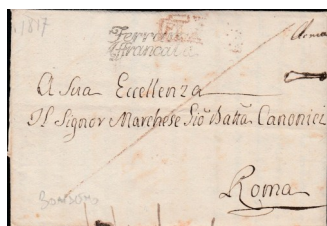 1817
Ferrara
Franca
A Sua Eccellenza
Il Signor Marchese Gio Batta Canonici
Roma